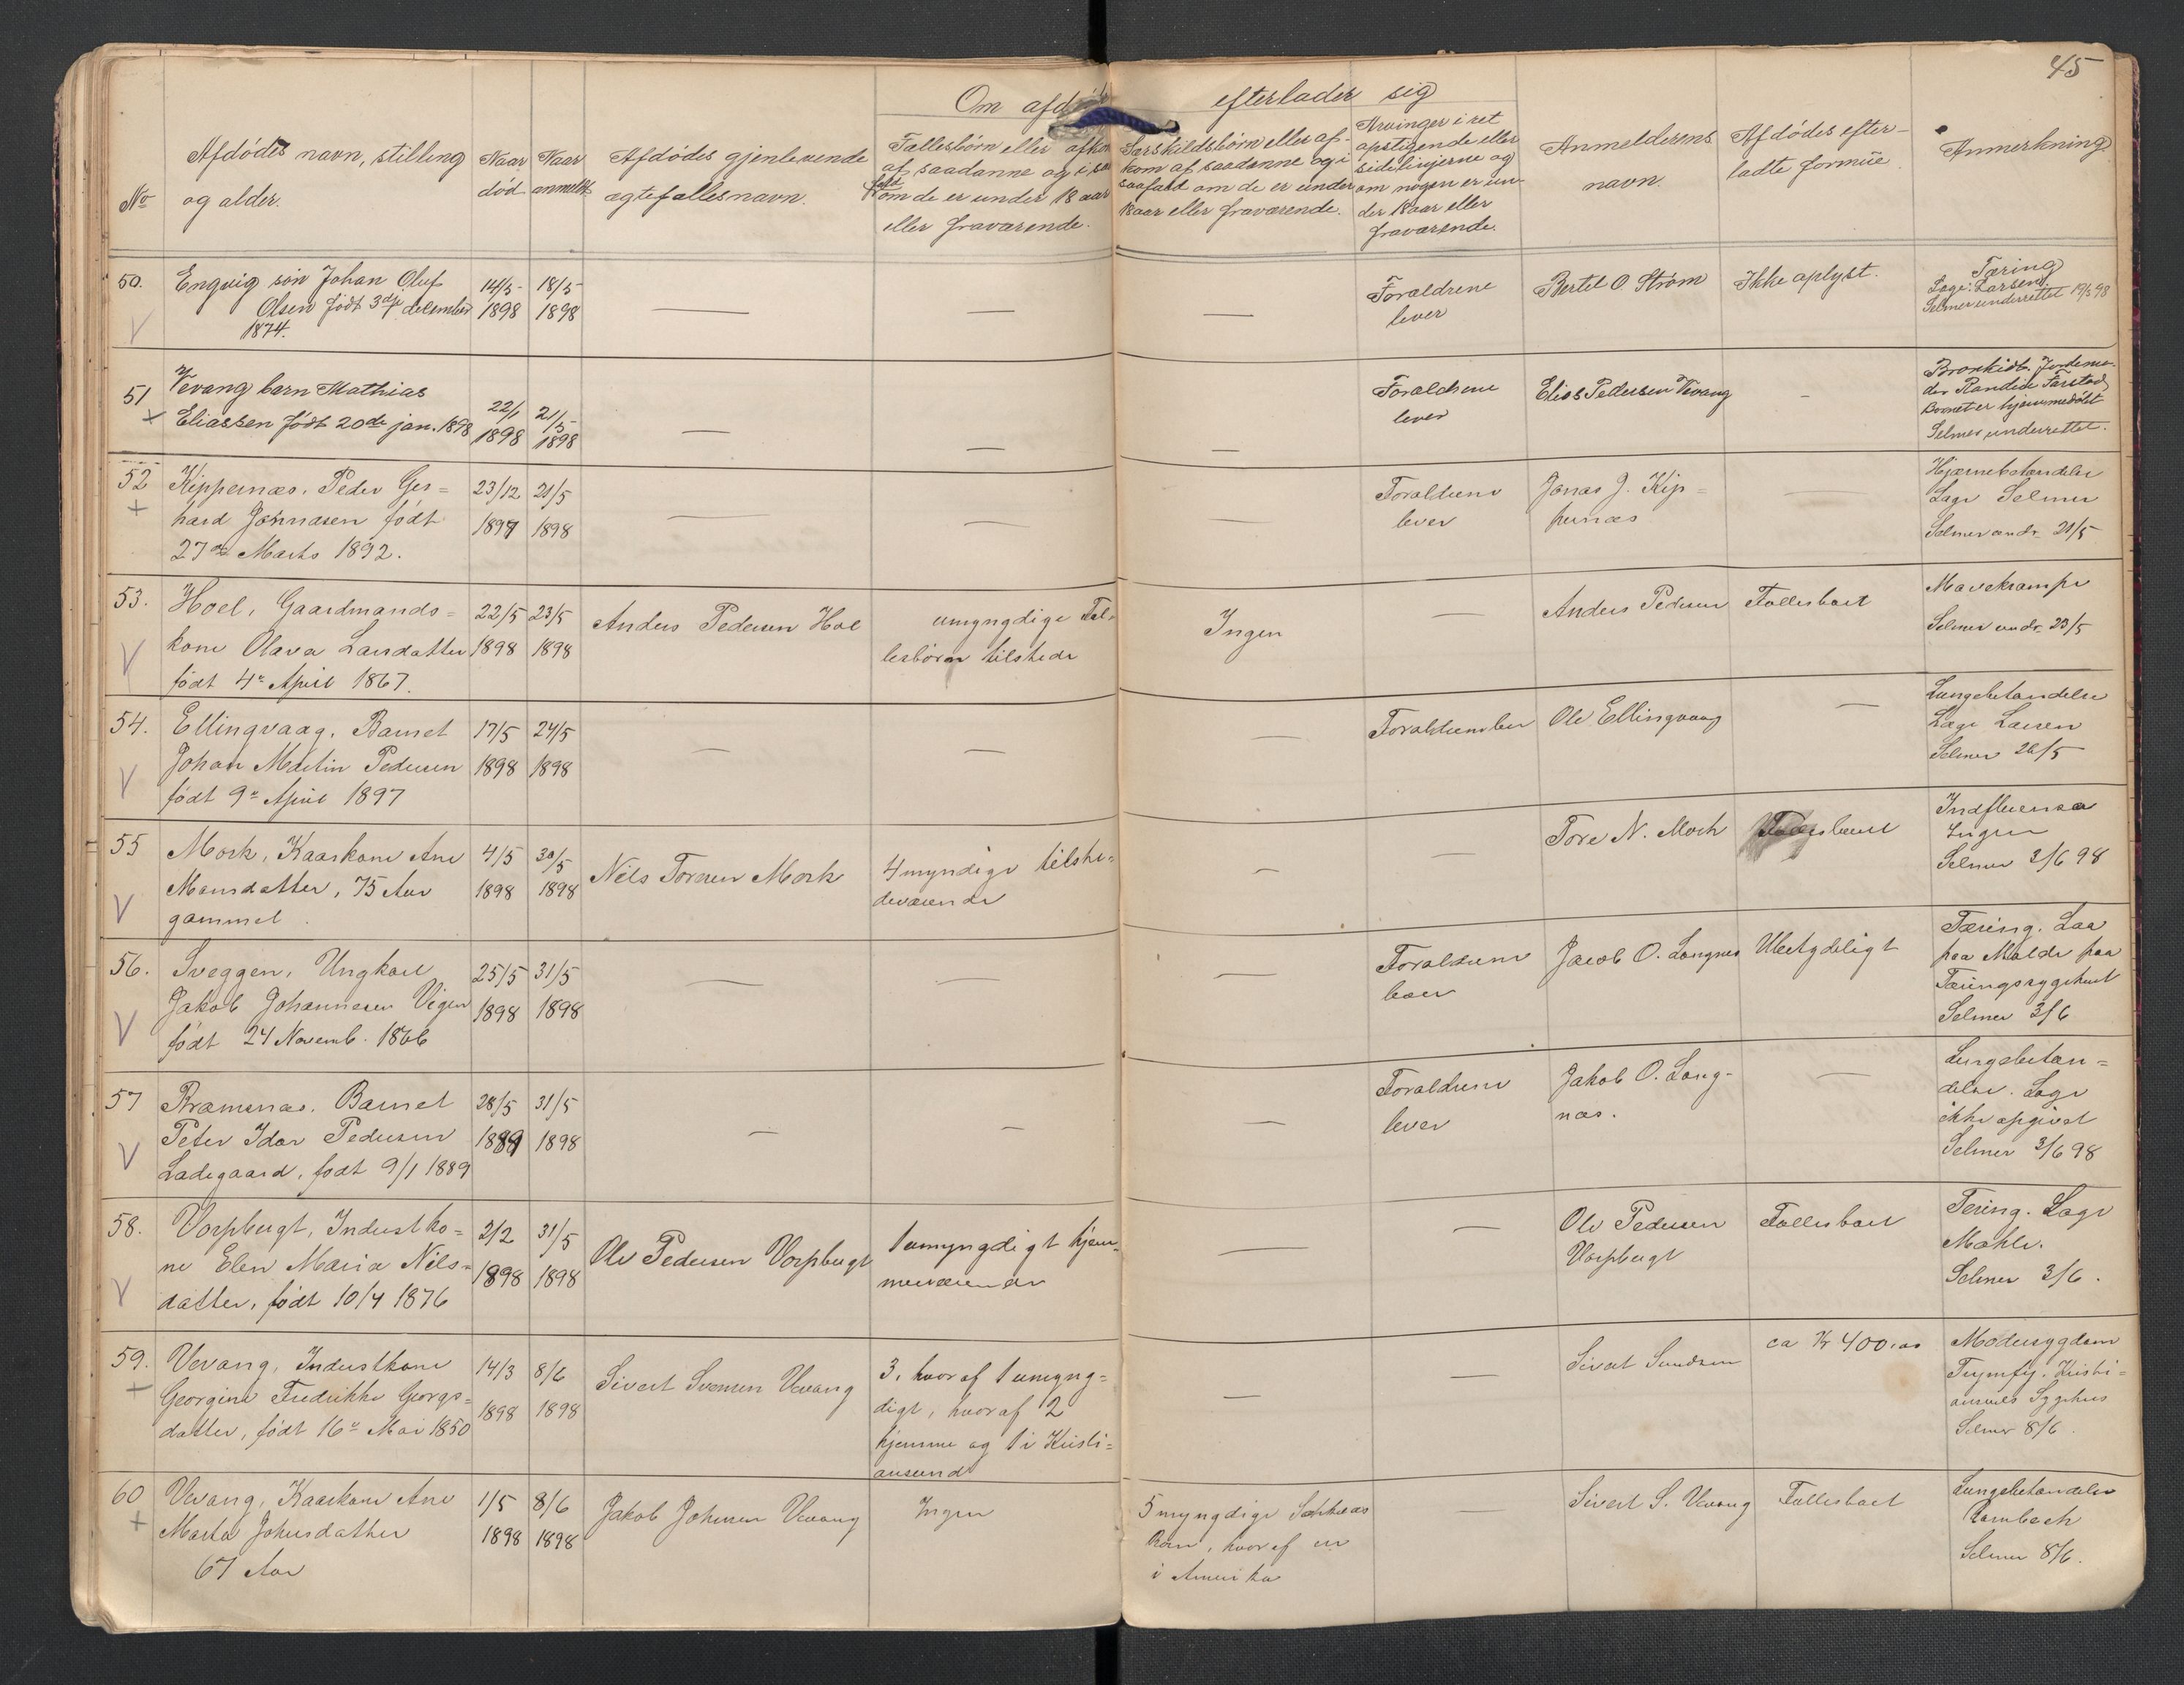 45
Om afdø efterlader sig
No
Afdødes navn, stilling
og alder.
Naar
død
Naar
anmeldt
Afdødes gjenlevende
ægtefællesnavn.
Fællesbørn eller afkom
af saadanne og i saa
fald om de er under 18 aar
eller fraværende.
Særskildsbørn eller af-
kom af saadanne og i
saafald om de er under
18 aar eller fraværende.
Arvinger i ret
opstigende eller
sidelinjerne og
om nogen er un-
der 18 aar eller
fraværende.
Anmelderens
navn.
Afdødes efter-
ladte formue
Anmerkning
50.
Engvig søn Johan Oluf
Olsen født 3die december
1874.
14/5
1898
18/5
1898
—
—
—
Forældrene
lever
Bertel O. Strøm
Ikke oplyst.
Tæring
Læge: Larsen
Selmer underrettet 19/5 98
51
Vevang barn Mathias
Eliassen født 20de jan. 1898
22/1
1898
21/5
1898
—
—
—
Forældrene
lever
Elias Pedersen Vevang
-
Bronkidt. Jordemo-
der Randide Farstad
Barnet er hjemmedøbt
Selmer underrettet.
52
Kippernæs. Peder Ger=
hard Johnasen født
27de Marts 1892.
23/12
1897
21/5
1898
—
—
—
Forældrene
lever
Jonas J. Kip=
pernæs
—
Hjernebetændelse
Læge Selmer
Selmer undr. 21/5
53.
Hoel, Gaardmands=
kone Olava Larsdatter
født 4de April 1867.
22/5
1898
23/5
1898
Anders Pedersen Hoel
umyngdige Fæl=
lesbørn tilstede
Ingen
—
Anders Pedersen
Fællesboet
Mavekrampe
Selmer undr. 23/5
54.
Ellingvaag, Barnet
Johan Martin Pedersen
født 9de April 1897
17/5
1898
24/5
1898
—
—
—
Forældrene lever
Ole Ellingvaag
—
Lungebetændelse
Læge Larsen
Selmer 26/5
55
Mork, Kaarkone Ane
Monsdatter, 75 Aar
gammel.
4/5
1898
30/5
1898
Nils Toresen Mork
4 myndige tilste=
deværende
—
—
Tore N. Mork
Fællesboet
Indfluensa
Ingen
Selmer 3/6 98
56.
Sveggen, Ungkarl
Jakob Johannesen Vigen
født 24 Novemb. 1866
25/5
1898
31/5
1898
—
—
—
Forældrene
lever
Jacob O. Longnes
Ubetydeligt
Tæring. Laa
paa Molde paa
Tæringssygehuset
Selmer 3/6
57
Bramsnæs, Barnet
Peter Idar Pedersen
Ladegaard, født 9/1 1889
28/5
31/5
1898
—
—
—
Forældrene
lever
Jakob O. Long-
næs.
—
Lungebetæn=
delse. Læge
ikke opgivet
Selmer 3/6 98
58.
Vorpbugt, Inderstko=
ne Elen Maria Nils=
datter, født 10/4 1876
2/2
1898
31/5
1898
Ole Pedersen Vorpbugt
1 umyngdigt hjem=
meværende
—
—
Ole Pedersen
Vorpbugt
Fællesboet
Tæring. Læge
Mohle.
Selmer 3/6.
59.
Vevang, Inderstkone
Georgine Fredrikke Georgs=
datter, født 16de Mai 1850
14/3
1898
8/6
1898
Sivert Svensen Vevang
3, hvoraf 1 umyng=
digt, hvoraf 2
hjemme og 1 i Kristi=
ansund
—
—
Sivert Svendsen
ca Kr 400,00
Modersygdom
Kristi=
ansunds Sygehus
Selmer 8/6.
60
Vevang, Kaarkone Ane
Marta Johnsdatter
67 Aar
1/5
1898
8/6
1898
Jakob Johnsen Vevang
Ingen
5 myngdige
Børn, hvoraf en
i Amerika
—
Sivert S. Vevang
Fællesboet
Lungebetændelse
Rambech
Selmer 8/6.